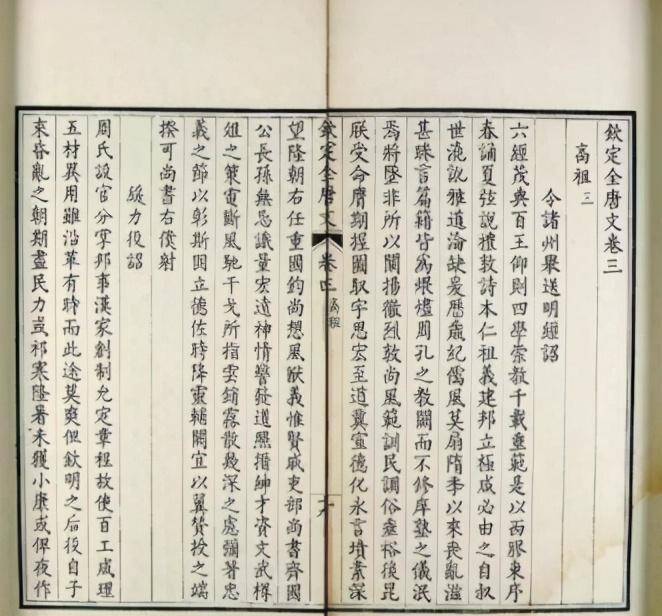 欽定全唐文卷三
高祖三
令諸州舉送明經詔
六經茂典百王仰則四學崇教千載垂範是以西膠東序
春誦夏弦說禮敦詩本仁祖義建邦立極咸必由之自叔
世澆訛雅道淪缺爰歷歲紀儒風莫扇隋季以來喪亂滋
甚睠言篇籍皆為煨燼周孔之教闕而不修庠塾之儀泯
焉將墜非所以闡揚徽烈敦尚風範訓民調俗垂裕後昆
朕受命膺期握圖馭宇思宏至道冀宣德化永言墳素深
欽定全唐文
卷三
高祖
望隆朝右任重國鈞尚想風猷義惟賢戚吏部尚書齊國
公長孫無忌識量宏遠神情警發道照搢紳才資文武樽
俎之策電斷風馳干戈所指雲銷霧散艱深之處彌著忠
義之節以彰斯固立德佐時降靈輔闕宜以翼贊授之端
揆可尚書右僕射
緩力役詔
周氏設官分掌邦事漢家創制允定章程故使百工咸理
五材異用雖沿革有時而此途莫爽但欽明之后後自子
來昏亂之朝期盡民力豈祁寒隆暑未獲小康或俾夜作